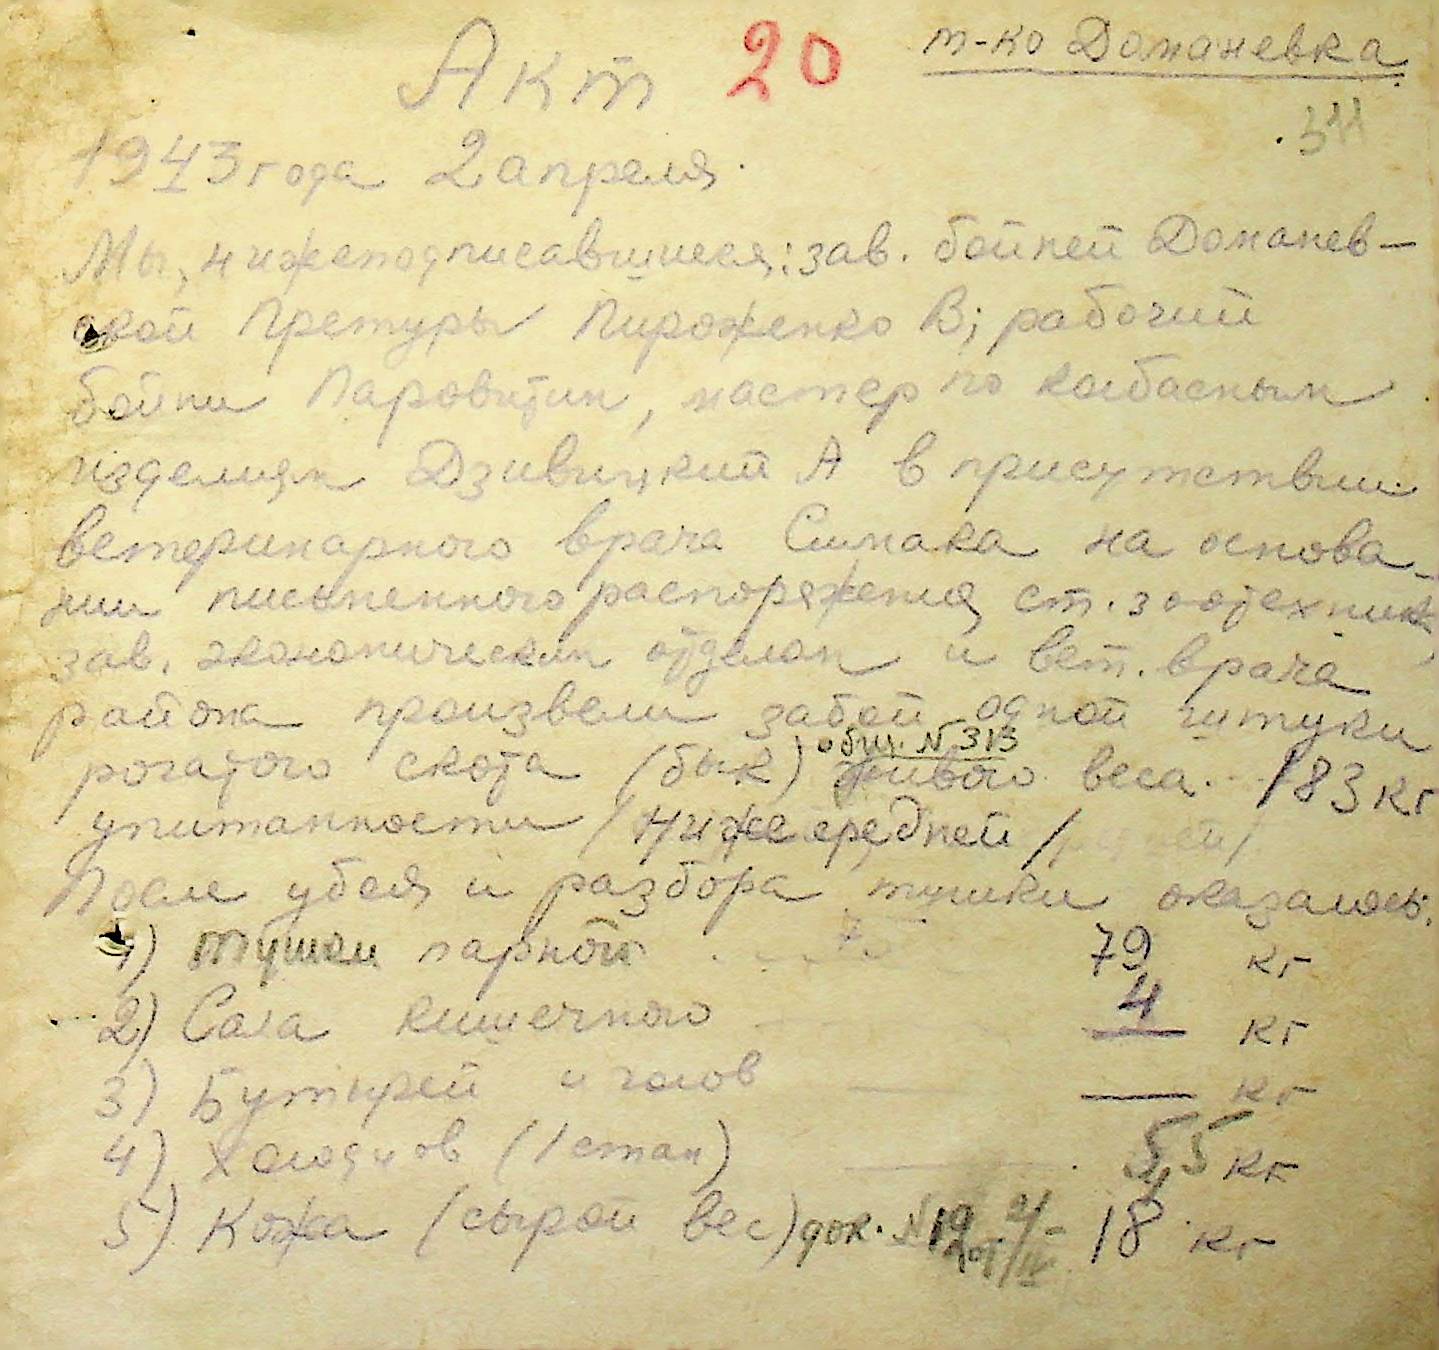 Акт 20 т-ко Доманевка
311
1943 года 2 апреля.
Мы, нижеподписавшиеся: зав. бойней Доманев-
ской Претуры Пироженко В; рабочий
бойни Паровятин, мастер по колбасным
изделиям Дзивицкий А в присутствии
ветеринарного врача Симака на основа-
нии письменного распоряжения ст. зоотехника,
зав. экономическим отделом и вет. врача
района произвели забой одной штуки
общ. № 313
рогатого скота (бык) живого веса. 183 кг
упитанности /ниже средней/
После убоя и разбора тушки оказалось:
1) Тушки парной 79 кг
2) Сала кишечного 4 кг
3) Бутырей и голов — кг
4) Холодцов (1 стан) 5,5 кг
5) Кожа (сырой вес) док. № 19 18 кг
от 2/IV